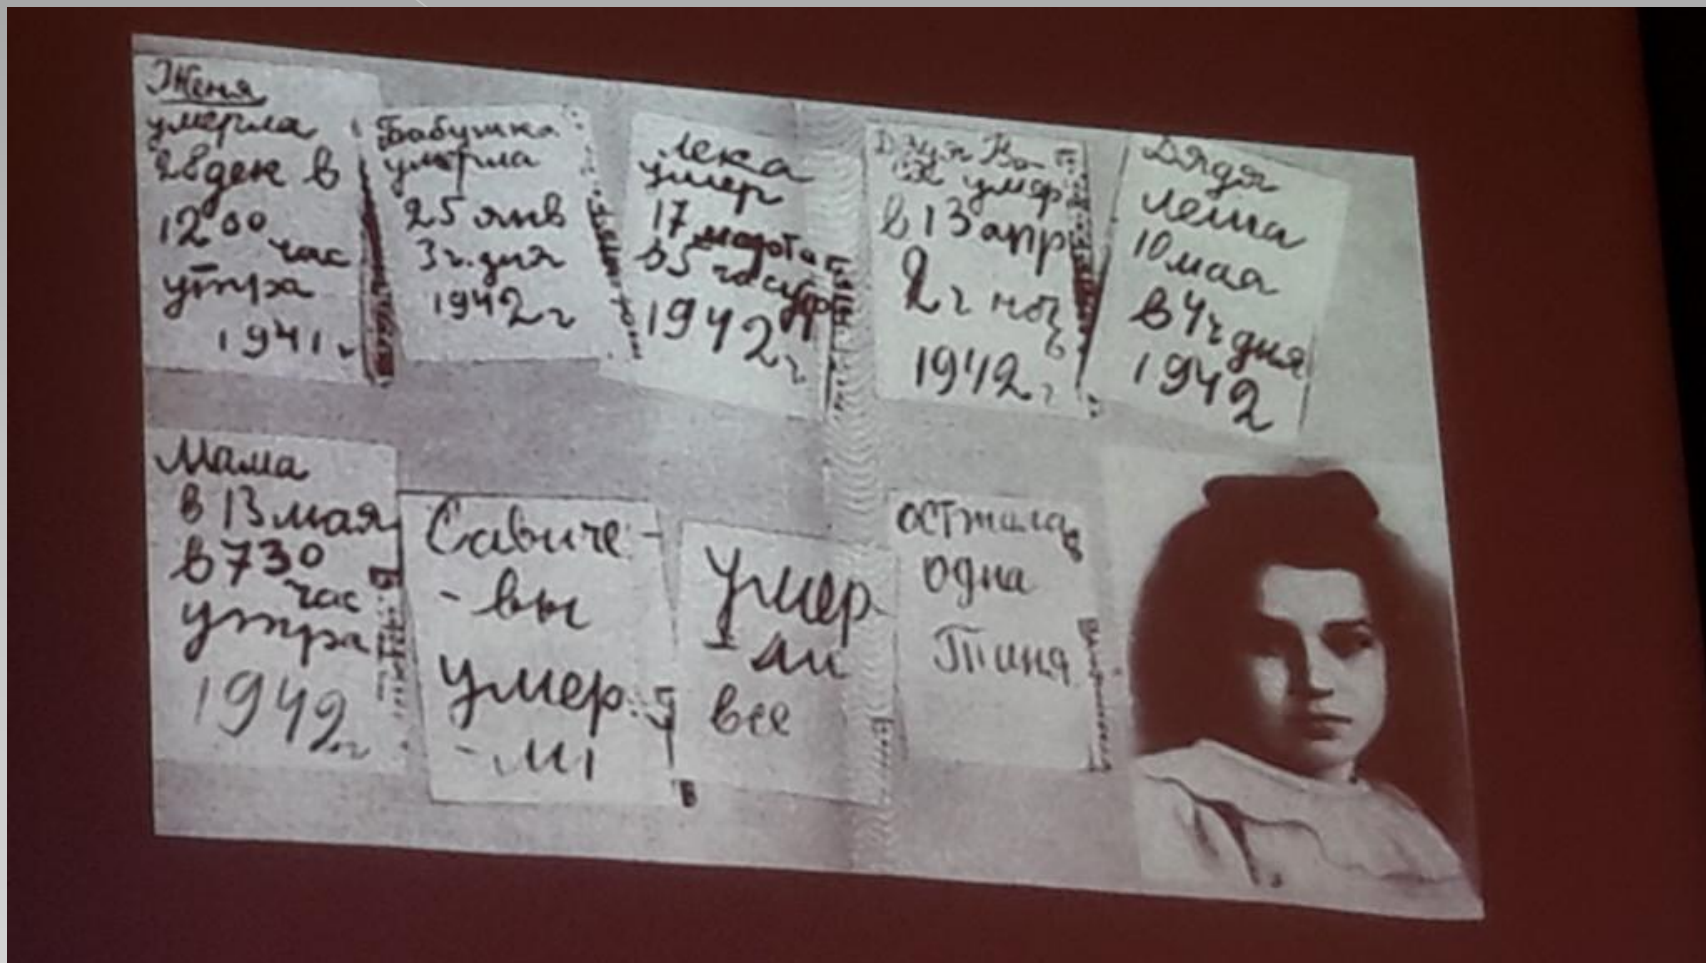 Женя
умерла
28 дек в
12 00
час
утра
1941 г
Бабушка
умерла
25 янв
3 ч. дня
1942 г
Лека
умер
17 марта
в 5 час утр
1942 г
Дядя Ва
ся умер
в 13 апр
2 ч ноч
1942 г
Дядя
Леша
10 мая
в 4 ч дня
1942
Мама
в 13 мая
в 7 30
час
утра
1942 г
Савиче-
- вы
умер
- ли
Умер
ли
все
осталась
одна
Таня